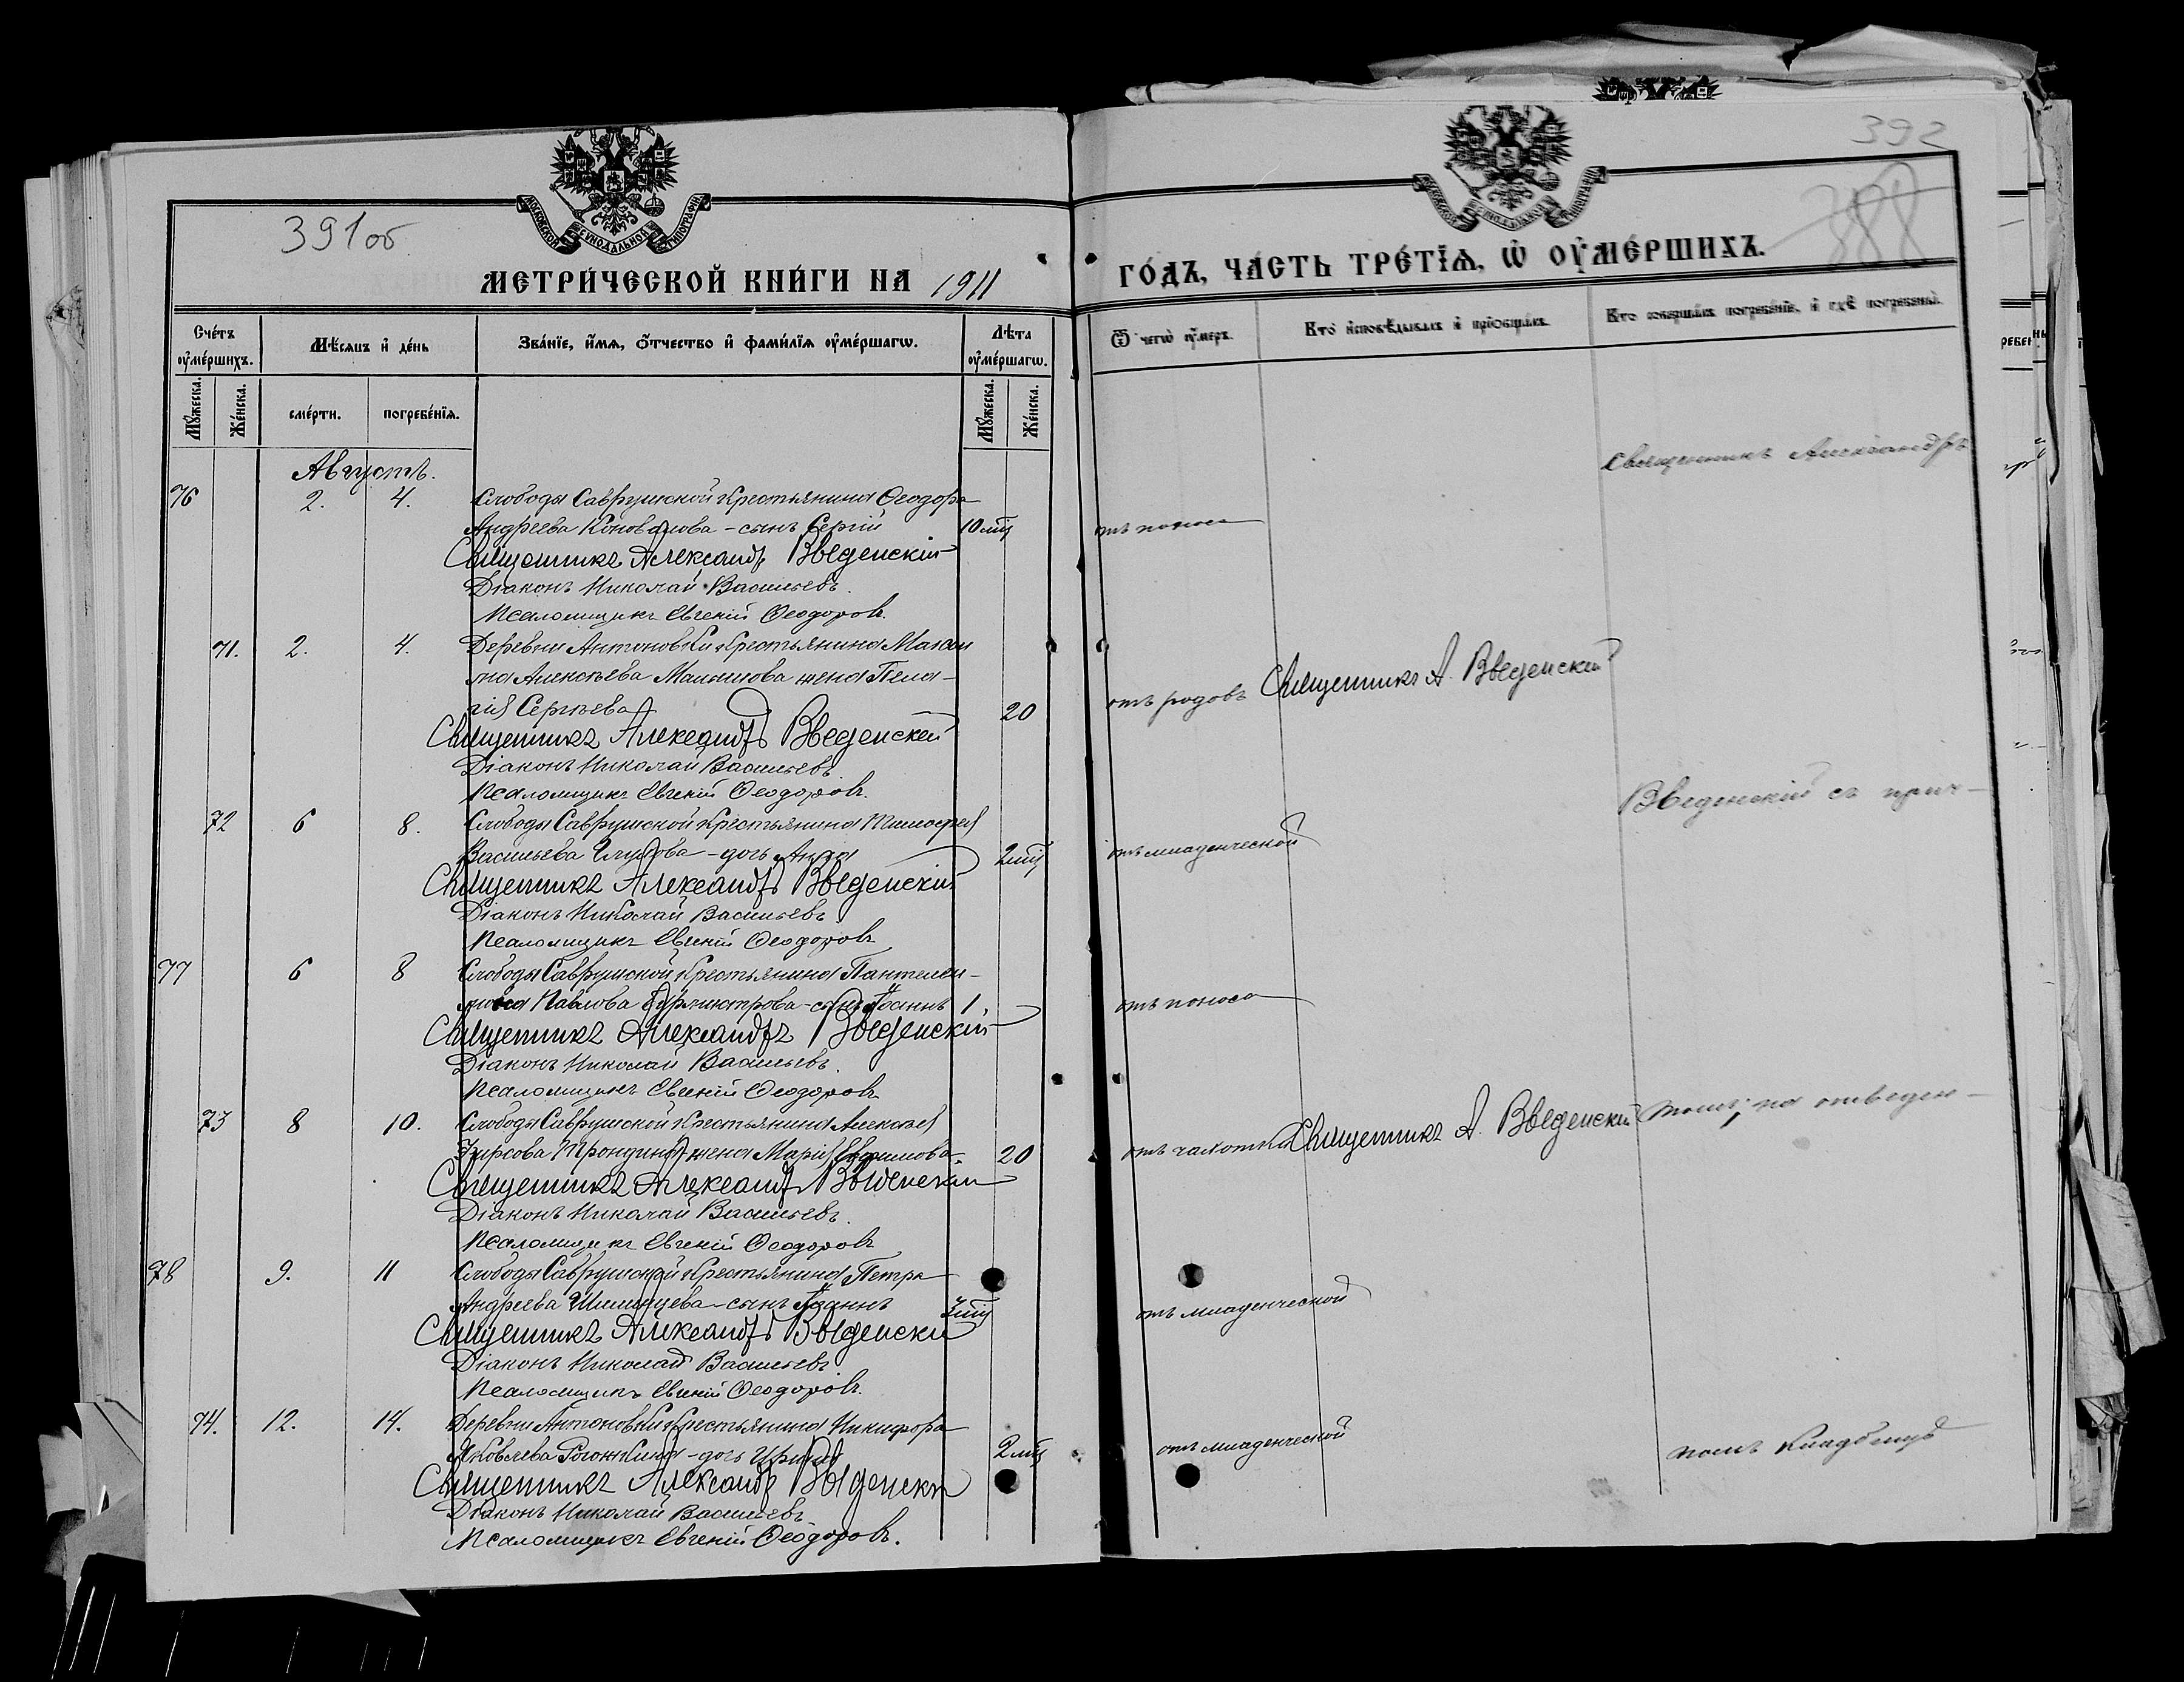 391об
МЕТРИЧЕСКОЙ КНИГИ НА 1911
Счетъ оумершихъ.
Мѣсяцъ и день
Званіе, имя, отчество и фамилія оумершагω.
Лѣта оумершагω.
Мужеска.
Женска.
смерти.
погребенія.
Мужеска.
Женска.
Августъ.
76 2. 4. Слободы Саврушской крестьянина Ѳеодора
Андреева Коновалова - сынъ Сергій 10 мц
Священникъ Александръ Введенскій
Діаконъ Николай Васильевъ.
Псаломщикъ Евгеній Ѳеодоровъ.
71. 2. 4. Деревни Антоновки крестьянина Макси
ма Алексѣева Малышова жена Пела-
гія Сергѣева 20
Священникъ Александръ Введенскій
Діаконъ Николай Васильевъ.
Псаломщикъ Евгеній Ѳеодоровъ.
72 6 8. Слободы Саврушской крестьянина Тимоѳея
Васильева - дочь Анна 2 мц
Священникъ Александръ Введенскій
Діаконъ Николай Васильевъ
Псаломщикъ Евгеній Ѳеодоровъ
77 6 8 Слободы Саврушской крестьянина Пантелеи-
мона Павлова - сынъ Іоаннъ 1.
Священникъ Александръ Введенскій
Діаконъ Николай Васильевъ.
Псаломщикъ Евгеній Ѳеодоровъ
73 8 10. Слободы Саврушской крестьянина Алексѣя
Фирсова Трондина жена Марія Евфимова. 20
Священникъ Александръ Введенскій
Діаконъ Николай Васильевъ.
Псаломщикъ Евгеній Ѳеодоровъ
78 9. 11 Слободы Саврушской крестьянина Петра
Андреева - сынъ Іоаннъ 3 мц
Священникъ Александръ Введенскій
Діаконъ Николай Васильевъ
Псаломщикъ Евгеній Ѳеодоровъ.
74. 12. 14. Деревни Антоновки крестьянина Никифора
Яковлева Рогожкина - дочь Ирина 2 мц
Священникъ Александръ Введенскій
Діаконъ Николай Васильевъ
Псаломщикъ Евгеній Ѳеодоровъ.
392
388
ГОДЪ, ЧАСТЬ ТРЕТІѦ, Ѡ ОУМЕРШИХЪ.
Ѿ чегω оумеръ.
Кто исповѣдывалъ и пріобщалъ.
Кто совершалъ погребеніе, и гдѣ погребены.
Священникъ Александръ
отъ поноса
отъ родовъ Священникъ А. Введенскій
Введенскій съ прич-
отъ младенческой
отъ поноса
томъ, на отведен-
отъ чахотки Священникъ А. Введенскій
отъ младенческой
отъ младенческой
номъ кладбищѣ